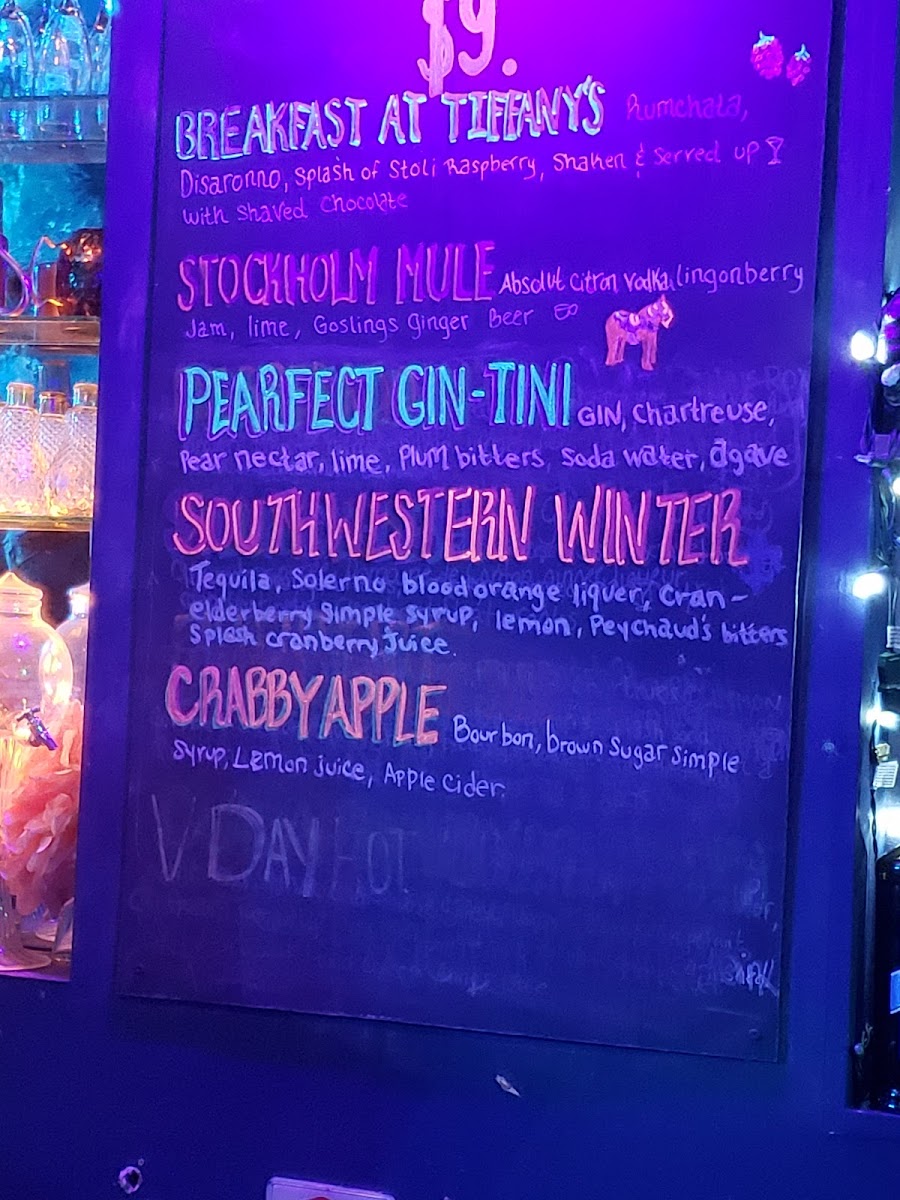 $9.
BREAKFAST AT TIFFANY'S Rumchata,
Disaronno, Splash of Stoli Raspberry, Shaken & Served up
with Shaved Chocolate
STOCKHOLM MULE Absolut Citron Vodka, lingonberry
Jam, lime, Goslings Ginger Beer
PEARFECT GIN-TINI GIN, Chartreuse,
Pear nectar, lime, Plum bitters, Soda water, agave
SOUTHWESTERN WINTER
Tequila, Solerno blood orange liquer, Cran-
elderberry simple syrup, lemon, Peychaud's bitters
Splash cranberry Juice.
CRABBY APPLE Bourbon, brown Sugar Simple
Syrup, Lemon juice, Apple Cider.
V DAY HOT